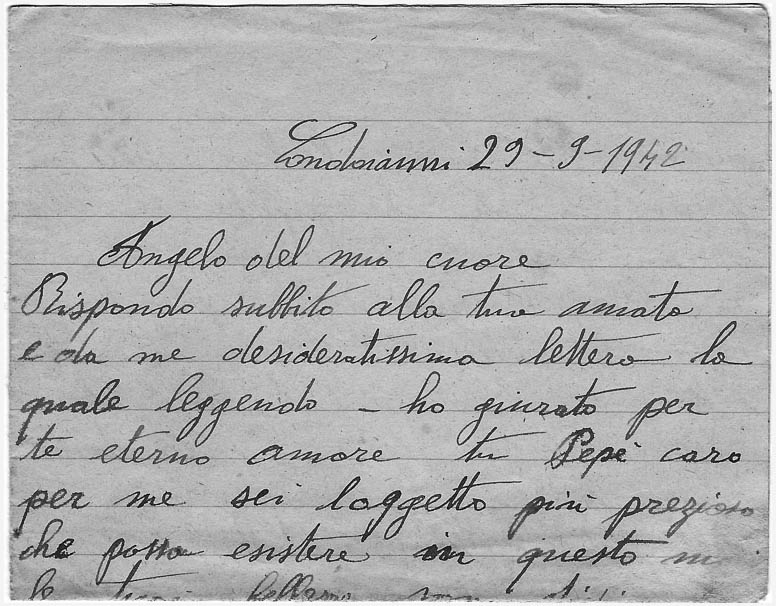 Condoianni 29-9-1942
Angelo del mio cuore
Rispondo subbito alla tua amata
e da me desideratissima lettera la
quale leggendo - ho giurato per
te eterno amore tu Pepè caro
per me sei loggetto più prezioso
che possa esistere in questo
bellezze